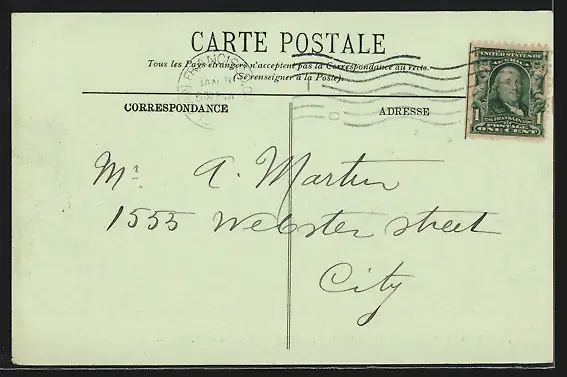 CARTE POSTALE
Tous les Pays étrangers n'acceptent pas la Correspondance au recto.
(Se renseigner à la Poste).
CORRESPONDANCE
ADRESSE
UNITED STATES OF
AMERICA
FRANKLIN
1 POSTAGE 1
ONE CENT
FRANCISCO
JAN
Mr. A. Martin
1555 Webster street
City